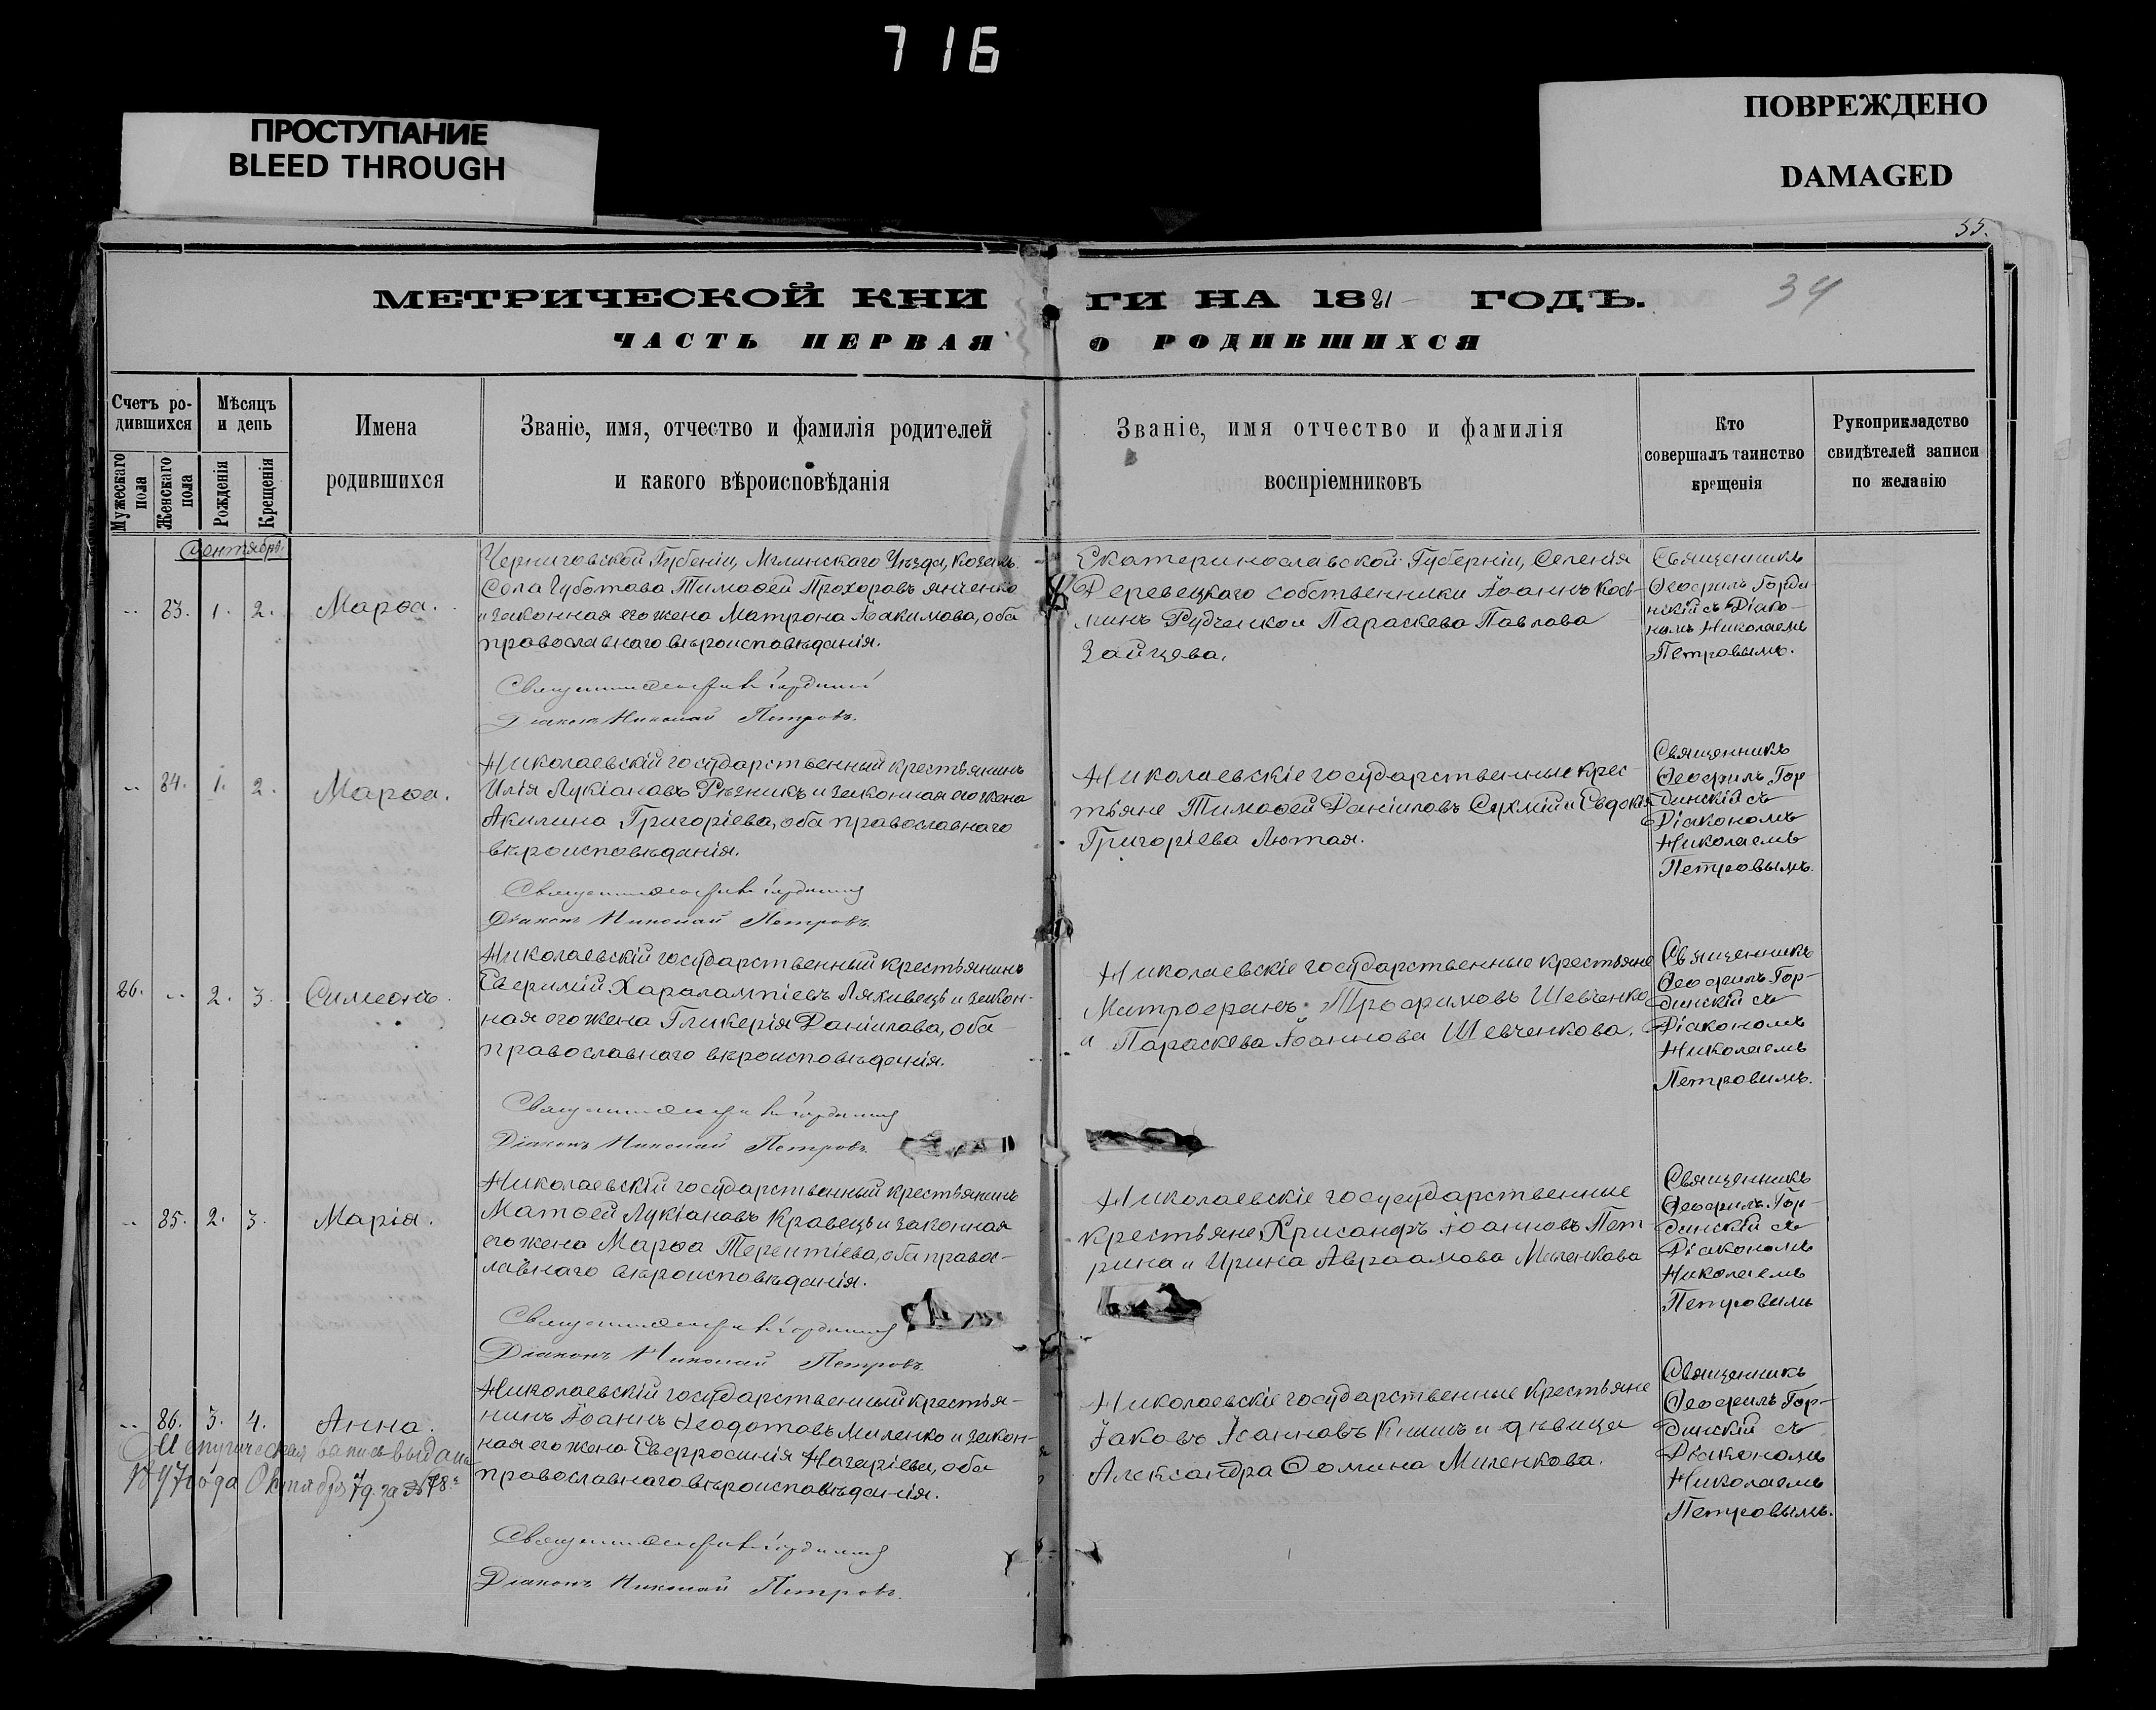 716
ПРОСТУПАНИЕ
BLEED THROUGH
ПОВРЕЖДЕНО
DAMAGED
35.
34
МЕТРИЧЕСКОЙ КНИ
ГИ НА 1881 ГОДЪ.
ЧАСТЬ ПЕРВАЯ
О РОДИВШИХСЯ
Счетъ ро-
дившихся
Мужескаго пола
Женскаго пола
Мѣсяцъ
и день
Рожденія
Крещенія
Имена
родившихся
Званіе, имя, отчество и фамилія родителей
и какого вѣроисповѣданія
Званіе, имя отчество и фамилія
воспріемниковъ
Кто
совершалъ таинство
крещенія
Рукоприкладство
свидѣтелей записи
по желанію
Сентябрь
83. 1. 2. Марѳа.
Черниговской Губеніи, Мглинскаго Уѣзда, Козакъ
Села Губотова Тимоѳей Прохоровъ Янченко
и законная его жена Матрона Іоакимова, оба
православнаго вѣроисповѣданія.
Діаконъ Николай Петровъ.
Екатеринославской Губерніи, Селенія
Деревецкаго собственники Іоаннъ Козь-
минъ Рудченко и Параскева Павлова
Зайцева.
Священникъ
Ѳеофилъ Горди-
нскій съ Діако-
номъ Николаемъ
Петровымъ.
84. 1. 2. Марѳа.
Николаевскій государственный крестьянинъ
Илія Лукіановъ Рѣзникъ и законная его жена
Акилина Григоріева, оба православнаго
вѣроисповѣданія.
Діаконъ Николай Петровъ.
Николаевскіе государственные крес-
тьяне Тимоѳей Даніиловъ Сухмій и Евдокія
Григоріева Лютая.
Священникъ
Ѳеофилъ Гор
динскій съ
Діакономъ
Николаемъ
Петровымъ.
86. 2. 3. Симеонъ.
Николаевскій государственный крестьянинъ
Евфимій Харалампіевъ Лякивецъ и закон-
ная его жена Гликерія Даніилова, оба
православнаго вѣроисповѣданія.
Діаконъ Николай Петровъ.
Николаевскіе государственные крестьяне
Митрофанъ Трофимовъ Шевченко
и Параскева Іоаннова Шевченкова.
Священникъ
Ѳеофилъ Гор-
динскій съ
Діакономъ
Николаемъ
Петровымъ.
85. 2. 3. Марія.
Николаевскій государственный крестьянинъ
Матѳей Лукіановъ Кравецъ и законная
его жена Марѳа Терентіева, оба правос-
лавнаго вѣроисповѣданія.
Діаконъ Николай Петровъ.
Николаевскіе госусударственные
крестьяне Хрисанфъ Іоанновъ Пет-
рина и Ирина Авраамова
Священникъ
Ѳеофилъ Гор-
динскій съ
Діакономъ
Николаемъ
Петровымъ
86. 3. 4. Анна.
Метрическая запись выдана
года Октября 7 д. за № 78
Николаевскій государственный крестья-
нинъ Іоаннъ Ѳеодотовъ Миленко и закон-
ная его жена Евфросинія Назаріева, оба
православнаго вѣроисповѣданія.
Діаконъ Николай Петровъ.
Николаевскіе государственные крестьяне
Іаковъ Іоанновъ и дѣвица
Александра Ѳомина Миленкова.
Священникъ
Ѳеофилъ Гор-
динскій съ
Діакономъ
Николаемъ
Петровымъ.